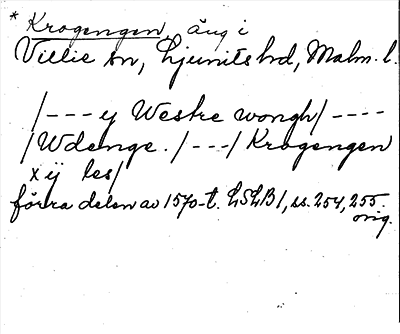 * Krogengen, äng i
Villie sn, Ljunits hd, Malm. l.
/--- y Westre wongh/ ----
/Wdenge. /---/ Krogengen
x ij les/
förra delen av 1570-t. LSLB 1, ss. 254, 255.
orig.